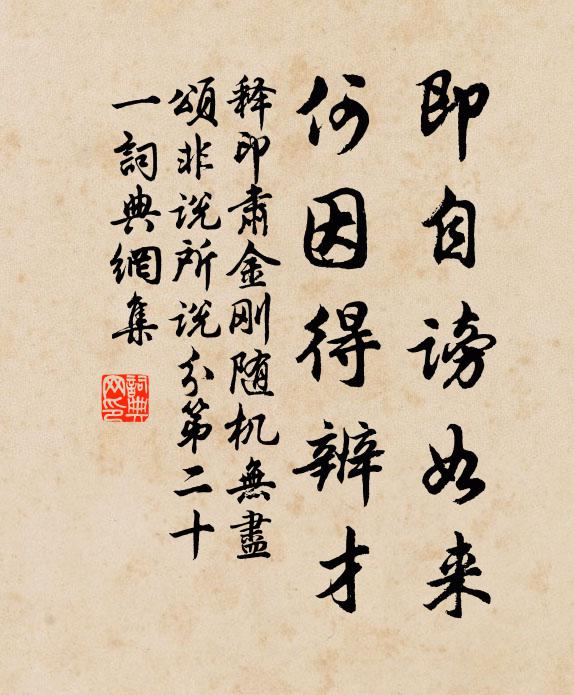 即自謗如来
何因得辨才
释印肃金刚随机無盡
頌非说所说分第二十
一詞典網集
詞典
网印